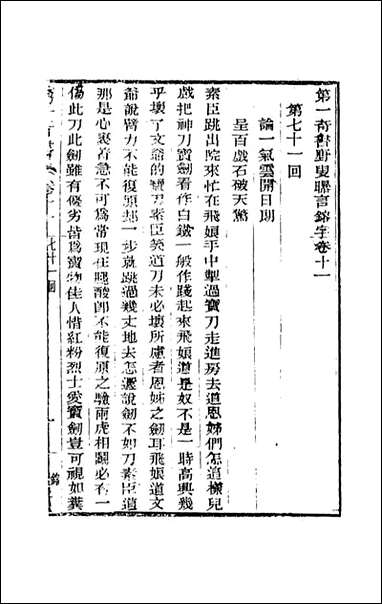 第一奇書野叟曝言鎔字卷十一
第七十一回
論一氣雲開日朗
呈百戲石破天驚
素臣跳出院來忙在飛娘手中掣過寶刀走進房去道恩姊們怎這樣兒
戲把神刀寶劍看作白鐵一般作踐起來飛娘道是奴不是一時高興幾
乎壞了文爺的寶刀素臣笑道刀未必壞所慮者恩姊之劍耳飛娘道文
爺說臂力不能復原却一步就跳過幾丈地去怎還說劍不如刀素臣道
那是心裹着急不可爲常現在腿酸卽不能復原之驗兩虎相鬬必有一
傷此刀此劍雖有優劣皆爲寶物佳人惜紅粉烈士愛寶劍豈可視如糞